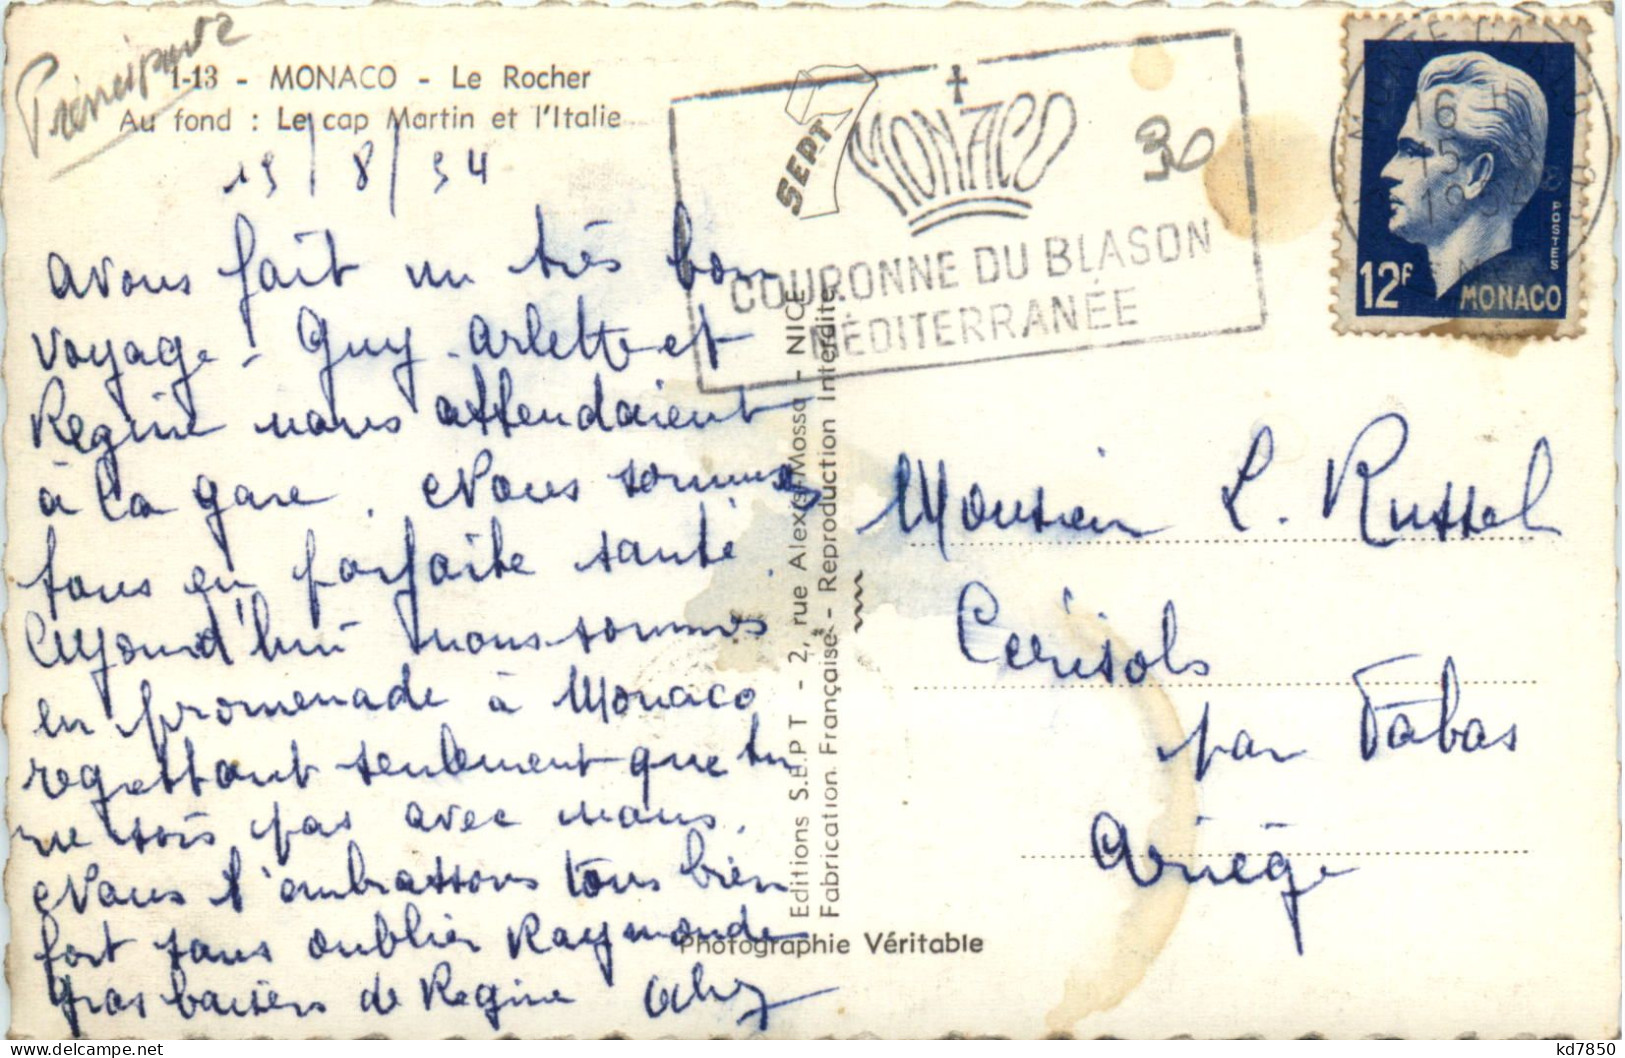 Principauté
1-13 - MONACO - Le Rocher
Au fond : Le cap Martin et l'Italie
15/8/54
avons fait un très bon
voyage - Guy - Arlette et
Regine nous attendaient
à la gare. Nous sommes
tous en parfaite santé.
Aujourd'hui nous sommes
en promenade à Monaco
regrettant seulement que tu
ne sois pas avec nous.
Nous t'embrassons tous bien
fort sans oublier Raymonde
Gros baisers de Regine
7 SEPT
MONACO
COURONNE DU BLASON
MÉDITERRANÉE
30
MONTE CARLO
16 H
15 - 8
1954
12F
POSTES
MONACO
Editions S.E.P.T - 2, rue Alexis Mossa - NICE
Fabrication Française - Reproduction Interdite
Monsieur L. Russel
Cerisols
par Fabas
Ariège
Photographie Véritable
kd7850